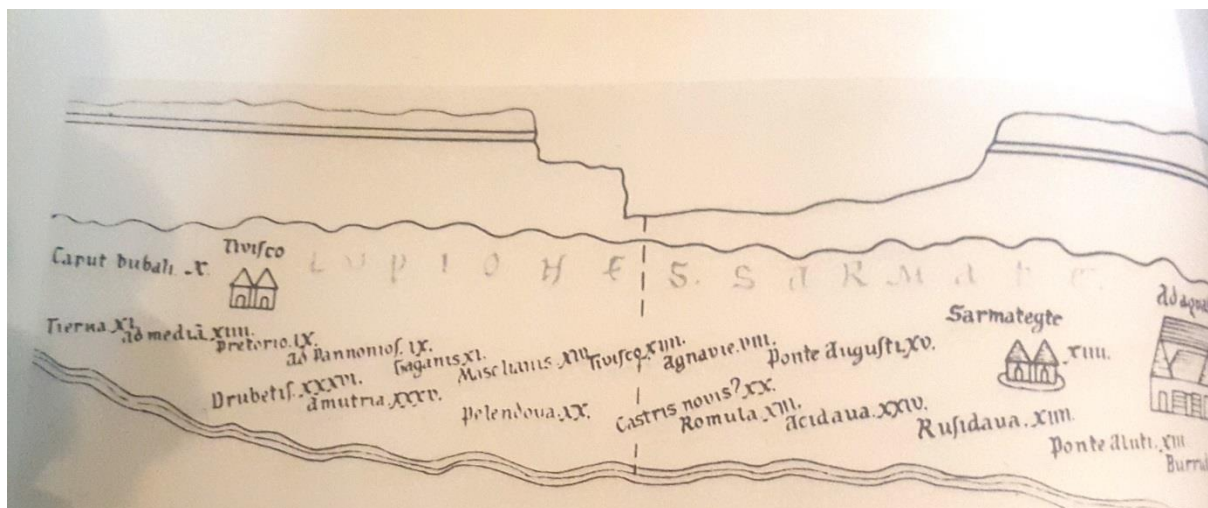 Tivisco
Caput bubali .X.
LUPIONES. SARMATE.
ad aqua
Sarmategte
XIIII.
Tierna XI.
ad mediā XIIII.
Pretorio. IX.
ad Pannonios. IX.
Gaganis XI.
Masclianis .XIIII.
Tivisco. XIIII.
Agnavie. VIII.
Ponte Augusti. XV.
Drubetis. XXXVI.
Amutria. XXXV.
Pelendova. XX.
Castris novis? XX.
Romula. XIII.
Acidava. XXIV.
Rusidava. XIIII.
Ponte Aluti. XIII.
Burri